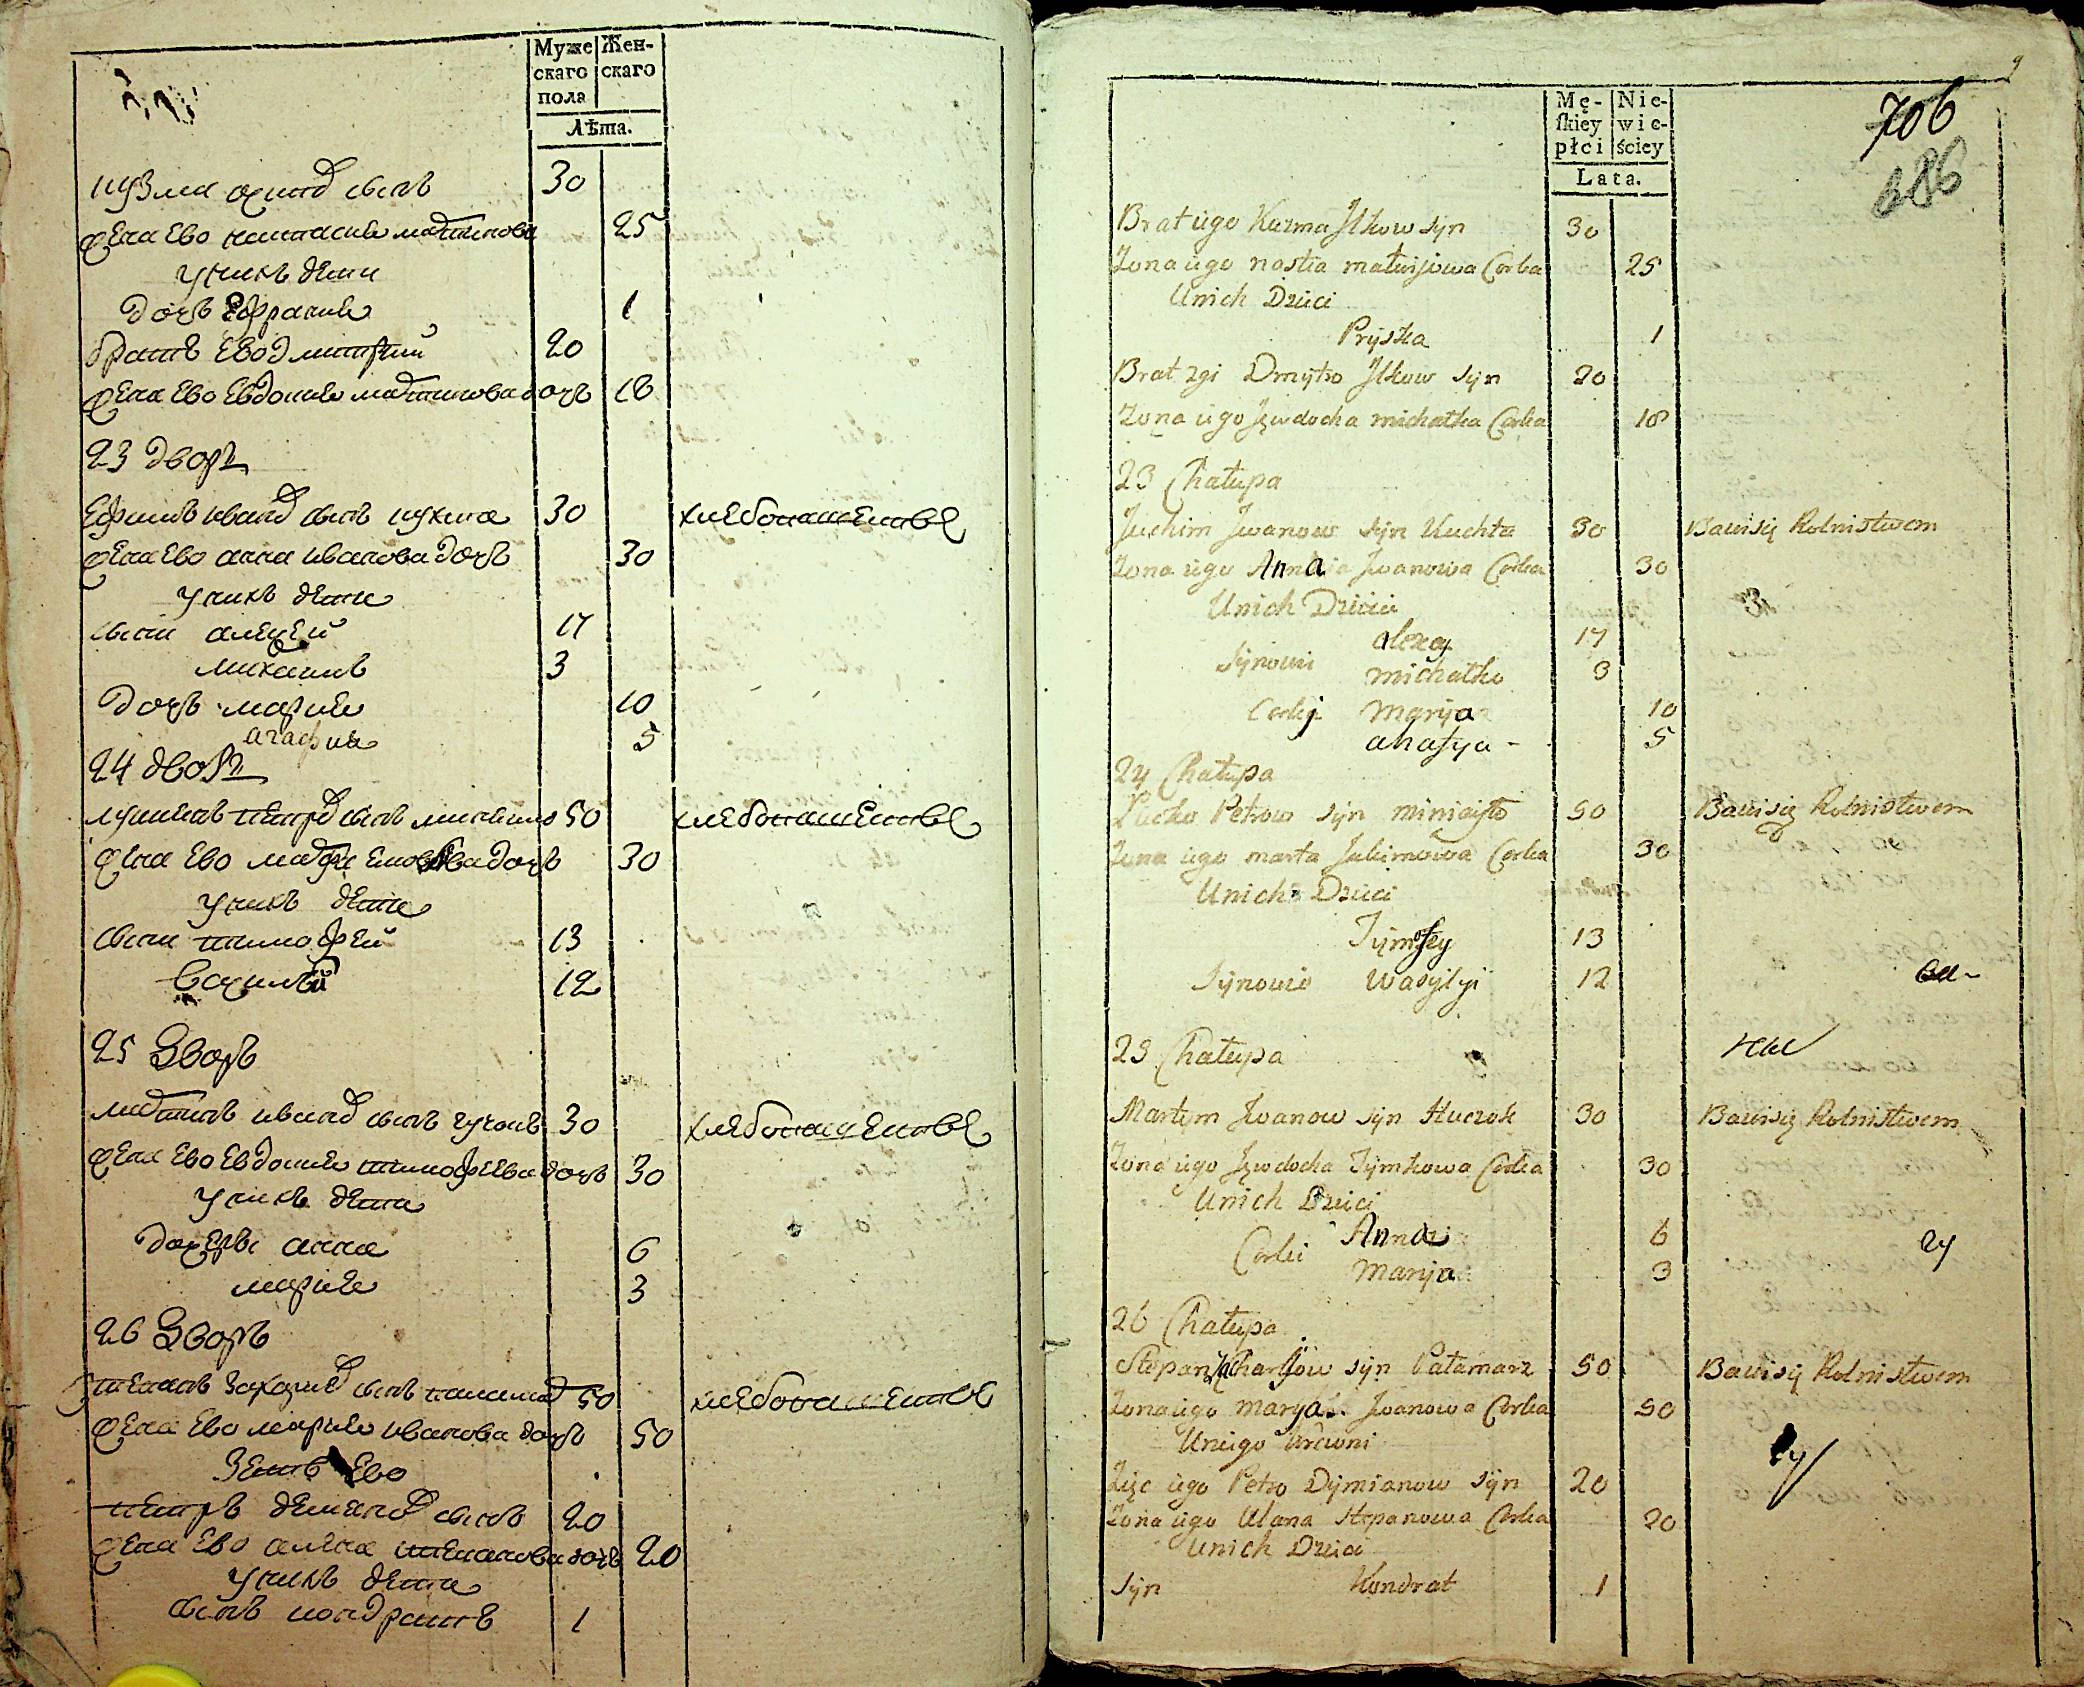 Муже Жен-
скаго скаго
пола
Лѣта.
кузма сынъ 30
жена ево настасия мартинова 25
у нихъ дети
дочь Ефрасия 1
братъ ево дмитрий 20
жена ево Евдокия мартинова дочь 18
23 дворъ
Ефимъ иванов сынъ кухта 30 хлебопашество
жена ево анна иванова дочь 30
у нихъ дети
сыни алексей 17
михаилъ 3
дочь мария 10
агафия 5
24 дворъ
лукианъ петров сынъ 50 хлебопашество
жена ево марфа дочь 30
у нихъ дети
сыни тимофей 13
василий 12
25 дворъ
мартинъ иванов сынъ гучокъ 30 хлебопашество
жена ево Евдокия тимофеева дочь 30
у нихъ дети
дочери анна 6
мария 3
26 дворъ
степанъ захариев сынъ паламар 50 хлебопашество
жена ево мария иванова дочь 50
зеть ево
петръ демянов сынъ 20
жена ево алена степанова дочь 20
у нихъ дети
сынъ кондратъ 1
9
Mę- Nie-
ſkiey wie-
płci ściey
Lata.
706
686
Brat iigo Kuzma Jlkow syn 30
Zona iigo nastia matwijowa Corka 25
Unich Dziici
Pryska 1
Brat zgi Dmytro Jlkow syn 20
Zona iigo Jęwdocha michałka Corka 18
23 Chałupa
Juchim Jwanow syn Kuchta 30 Bawisię Rolnistwem
Zona iigo Anna Jwanowa Corka 30
Unich Dziici
alexy 17
Synowi michałko 3
Corki Marija 10
ahafya - 5
24 Chałupa
Łucko Petrow syn 50 Bawisię Rolnistwem
Zona iigo marta Jakimowa Corka 30
Unich Dziici
Tymofey 13
Synowie Wasylyi 12
25 Chałupa
Martym Jwanow syn Huczok 30 Bawisię Rolnistwem
Zona iigo Jęwdocha Tymkowa Corka 30
Unich Dziici
Anna 6
Corki Marija 3
24
26 Chałupa
Stepan Zacharyow syn Pałamarz 50 Bawisię Rolnistwem
Zona iigo Marya Jwanowa Corka 50
Uniigo krewni
Zięc iigo Petro Dymianow syn 20
Zona iigo Ulana Stepanowa Corka 20
Unich Dziici
Syn Kondrat 1